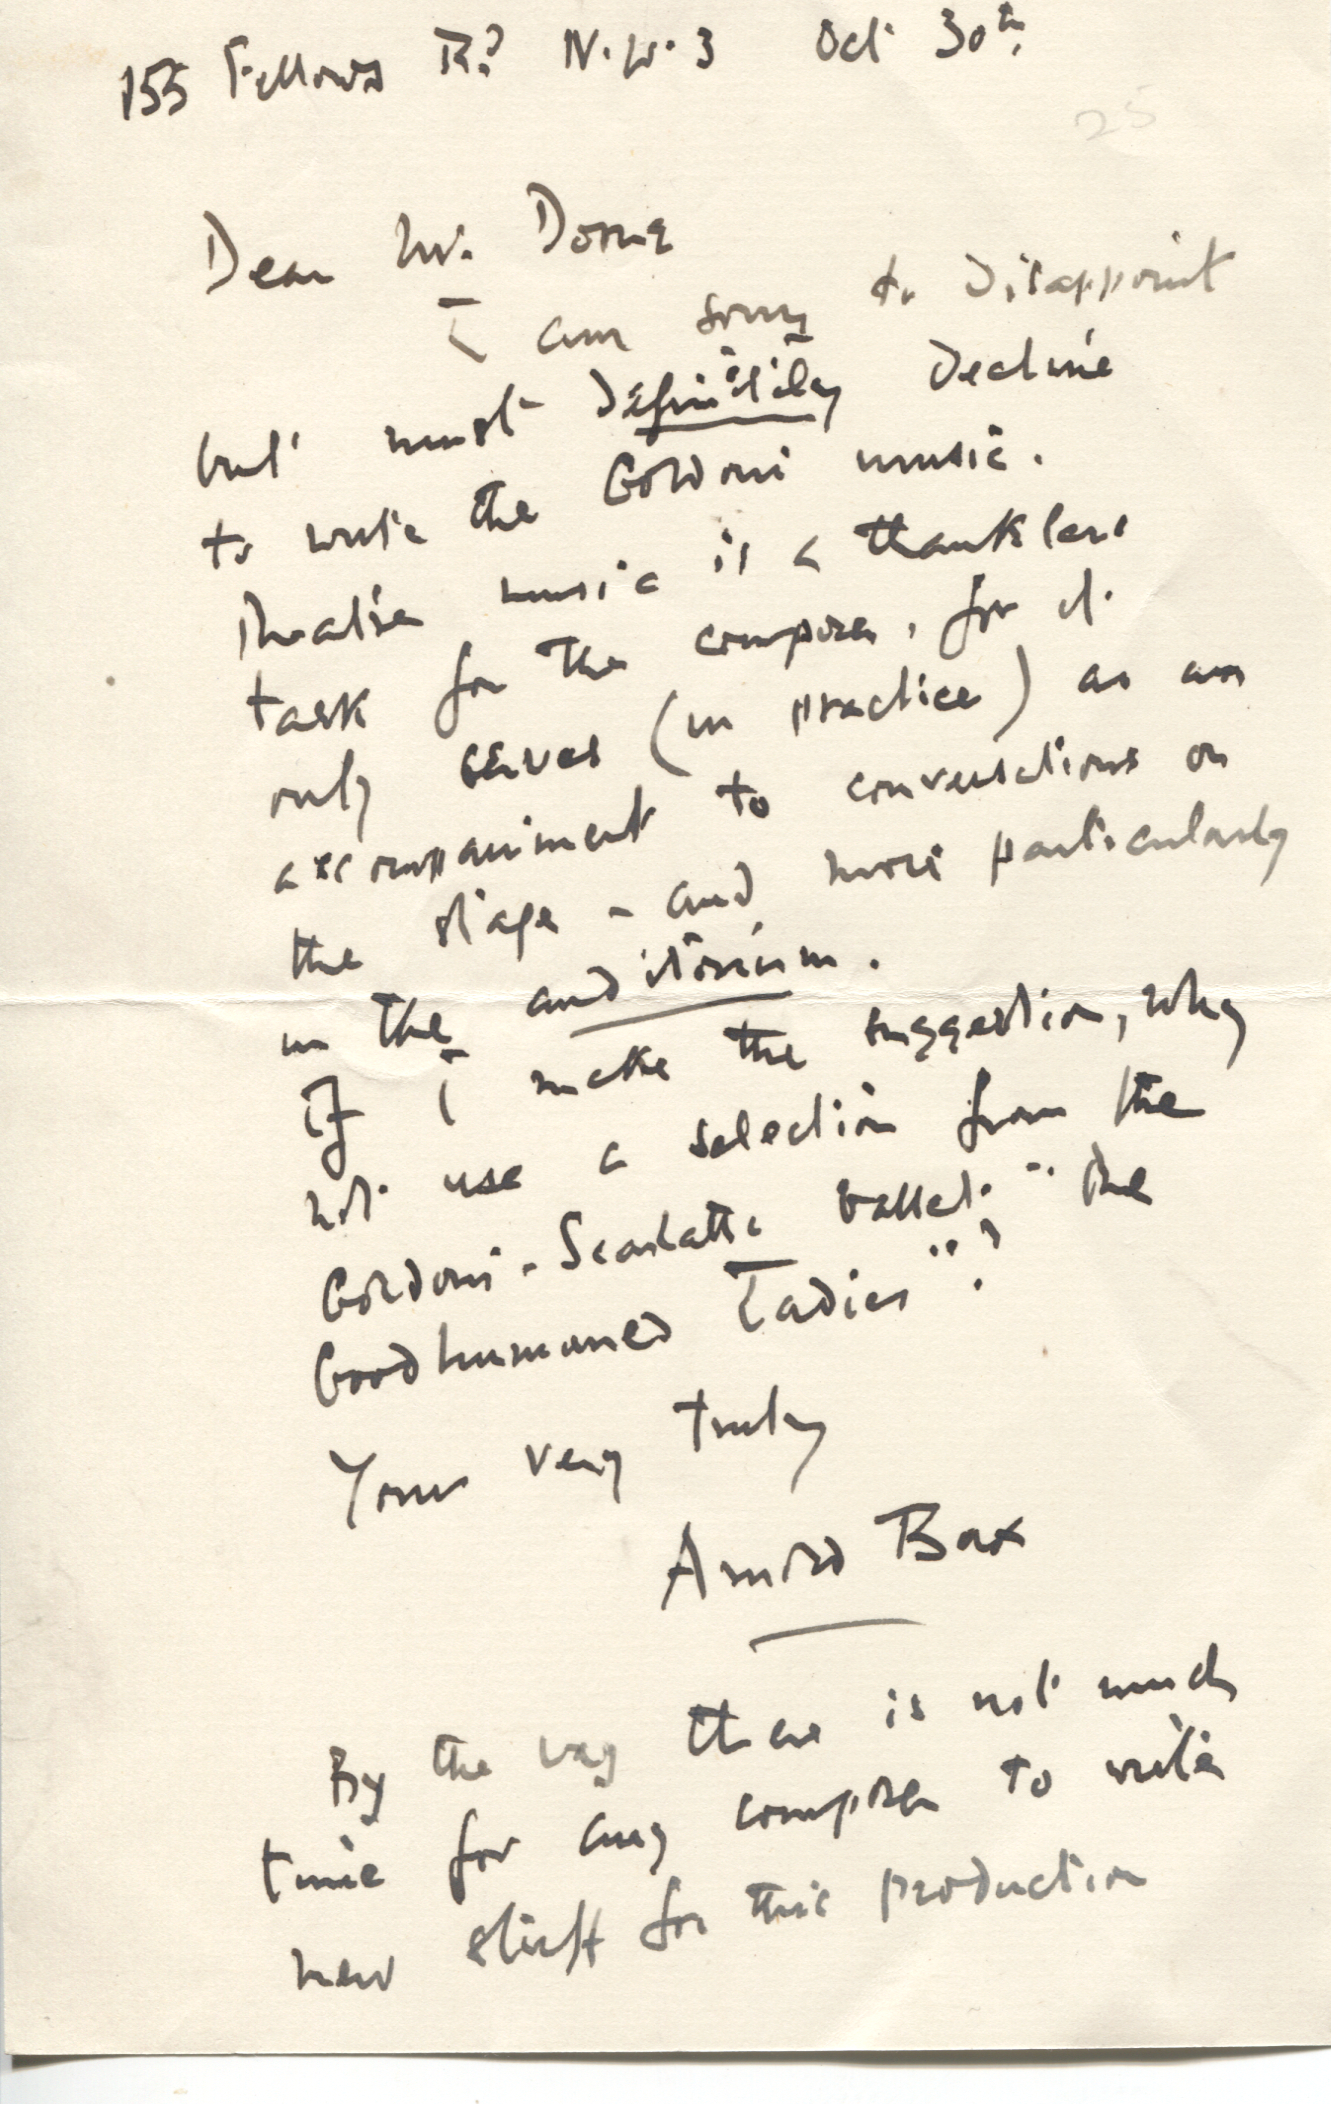 155 Fellows Rd N.W.3 Oct 30th.
25
Dear Mr. Dorne
I am sorry to disappoint
but must definitily decline
to write the Goldoni music.
Theatre music is a thankless
task for the composer, for it
only serves (in practice) as an
accompaniment to conversations on
the stage - and more particularly
in the auditorium.
If I make the suggestion, why
not use a selection from the
Goldoni-Scarlatti ballet "The
Goodhumoured Ladies"?
Yours very truly
Arnold Bax
By the way there is not much
time for any composer to write
new stuff for this production